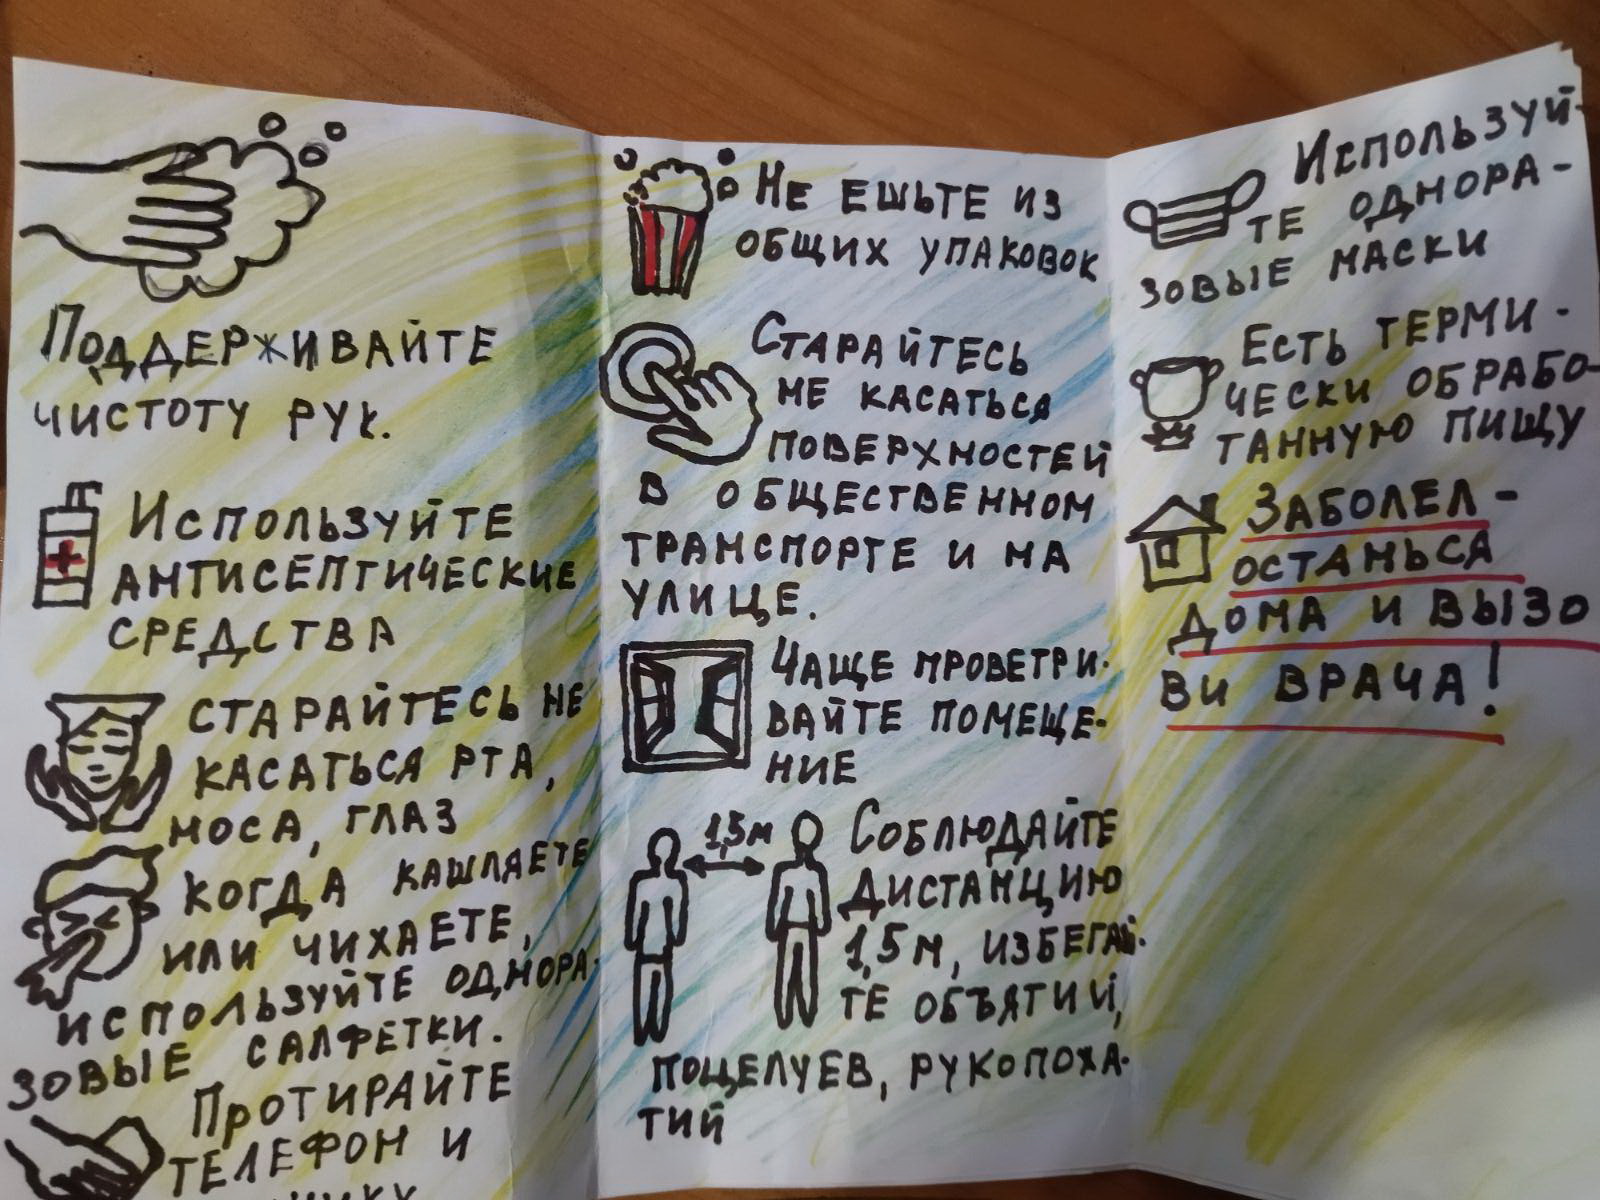 Поддерживайте
чистоту рук.
Используйте
антисептические
средства
Старайтесь не
касаться рта,
носа, глаз
Когда кашляете
или чихаете,
используйте однора-
зовые салфетки.
Протирайте
телефон и
Не ешьте из
общих упаковок
Старайтесь
не касаться
поверхностей
в общественном
транспорте и на
улице.
Чаще проветри-
вайте помеще-
ние
1,5м
Соблюдайте
дистанцию
1,5м, избегай-
те объятий,
поцелуев, рукопожа-
тий
Используй-
те однора-
зовые маски
Есть терми-
чески обрабо-
танную пищу
Заболел -
останься
дома и вызо
ви врача!